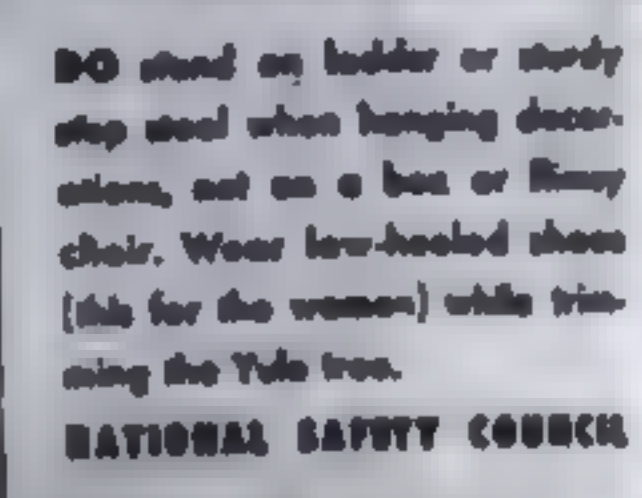 DO stand on ladder or sturdy
step stool when hanging decor-
ations, not on a box or flimsy
chair. Wear low-heeled shoes
(this for the women) while trim-
ming the Yule tree.
NATIONAL SAFETY COUNCIL